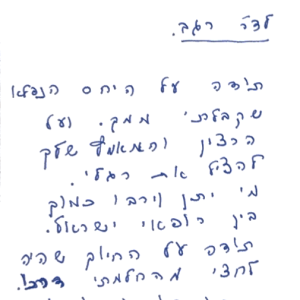 לד״ר רגב.
תודה על היחס הנפלא
שקבלתי ממך. ועל
הרצון והמאמץ שלך
להציל את רגלי.
מי יתן וירבו כמוך
בין רופאי ישראל.
תודה על החיוך שהיה
לחצי מהחלמתי דרכו.